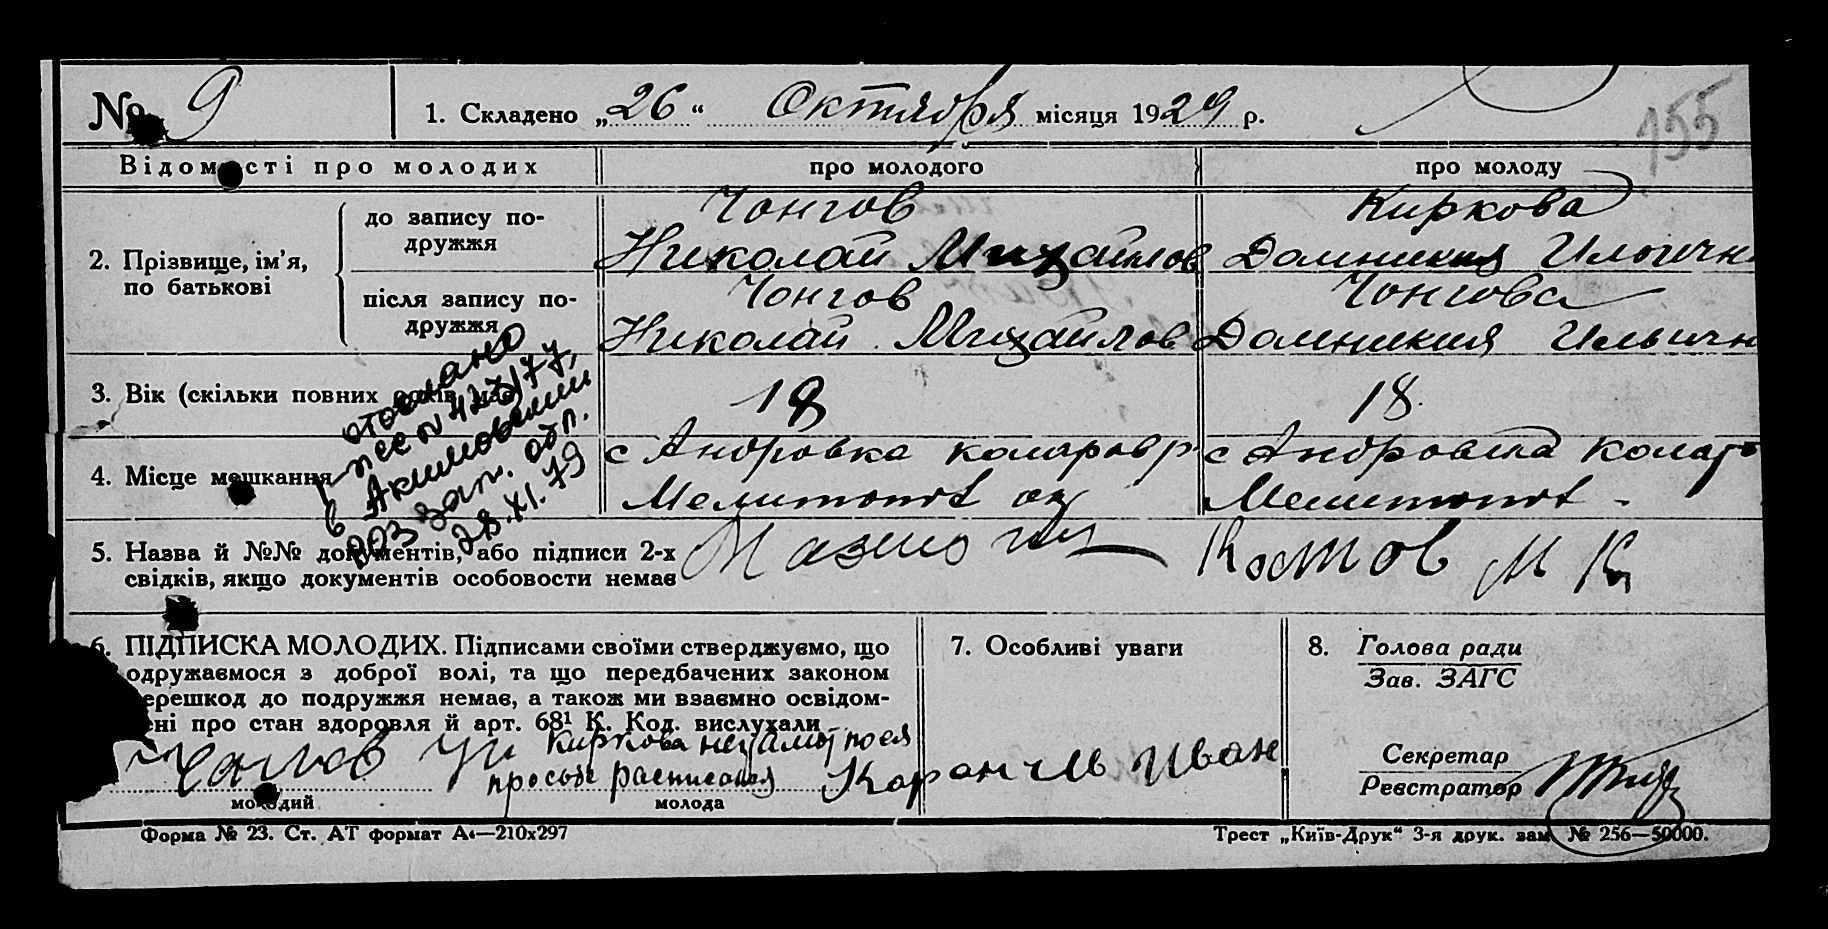 № 9
1. Складено „26“ Октября місяця 1929 р.
155
Відомості про молодих
про молодого
про молоду
2. Прізвище, ім’я, по батькові
до запису подружжя
Чонгов
Николай Михайлов
Киркова
Домникия Ильичн
після запису подружжя
Чонгов
Николай Михайлов
Чонгова
Домникия Ильичн
3. Вік (скільки повних років має)
18
18
4. Місце мешкання
с Андровка коларовр
Мелитопol ок
с Андровка Колар
Мелитопol
отослано
1-пес № 4279/77
в Акимовский
РОЗ Зап. обл.
28.XI.79
5. Назва й №№ документів, або підписи 2-х
свідків, якщо документів особовости немає
Костов М К
6. ПІДПИСКА МОЛОДИХ. Підписами своїми стверджуємо, що
одружаємося з доброї волі, та що передбачених законом
перешкод до подружжя немає, а також ми взаємно освідом-
лені про стан здоровля й арт. 68¹ К. Код. вислухали
Киркова неграмот по ея
просьбе расписался Карань Иван
молодий
молода
7. Особливі уваги
8. Голова ради
Зав. ЗАГС
Секретар
Реєстратор
Форма № 23. Ст. АТ формат А₄—210х297
Трест „Київ-Друк“ 3-я друк. зам. № 256—50000.